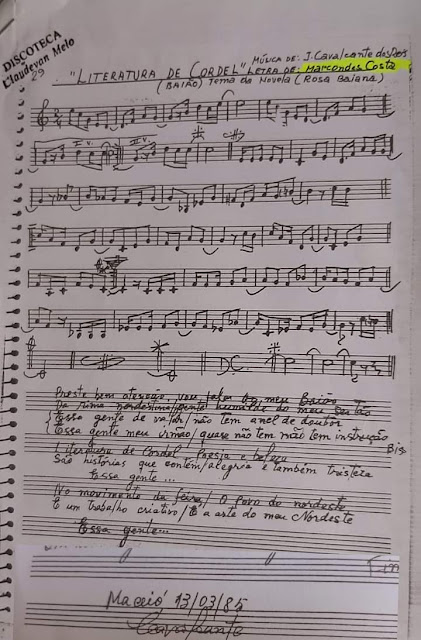 DISCOTECA
Claudevan Melo
29
MÚSICA DE: J. Cavalcante dos Reis
"LITERATURA DE CORDEL" LETRA DE: Marcondes Costa
(BAIÃO) Tema da Novela (Rosa Baiana)
I V.
II V.
D.C.
Preste bem atenção, vou falar do meu Baião
Da rima nordestina/gente humilde do meu Sertão
Essa gente de valor/não tem anel de doutor
Essa gente meu irmão/quase não tem não tem instrução
Bis
Literatura de Cordel Poesia e beleza
São histórias que contém/alegria e também tristeza
Essa gente...
No movimento da feira/O Povo do nordeste
É um trabalho criativo/É a arte do meu Nordeste
Essa gente...
Fim
Maceió 13/03/85
Cavalcante